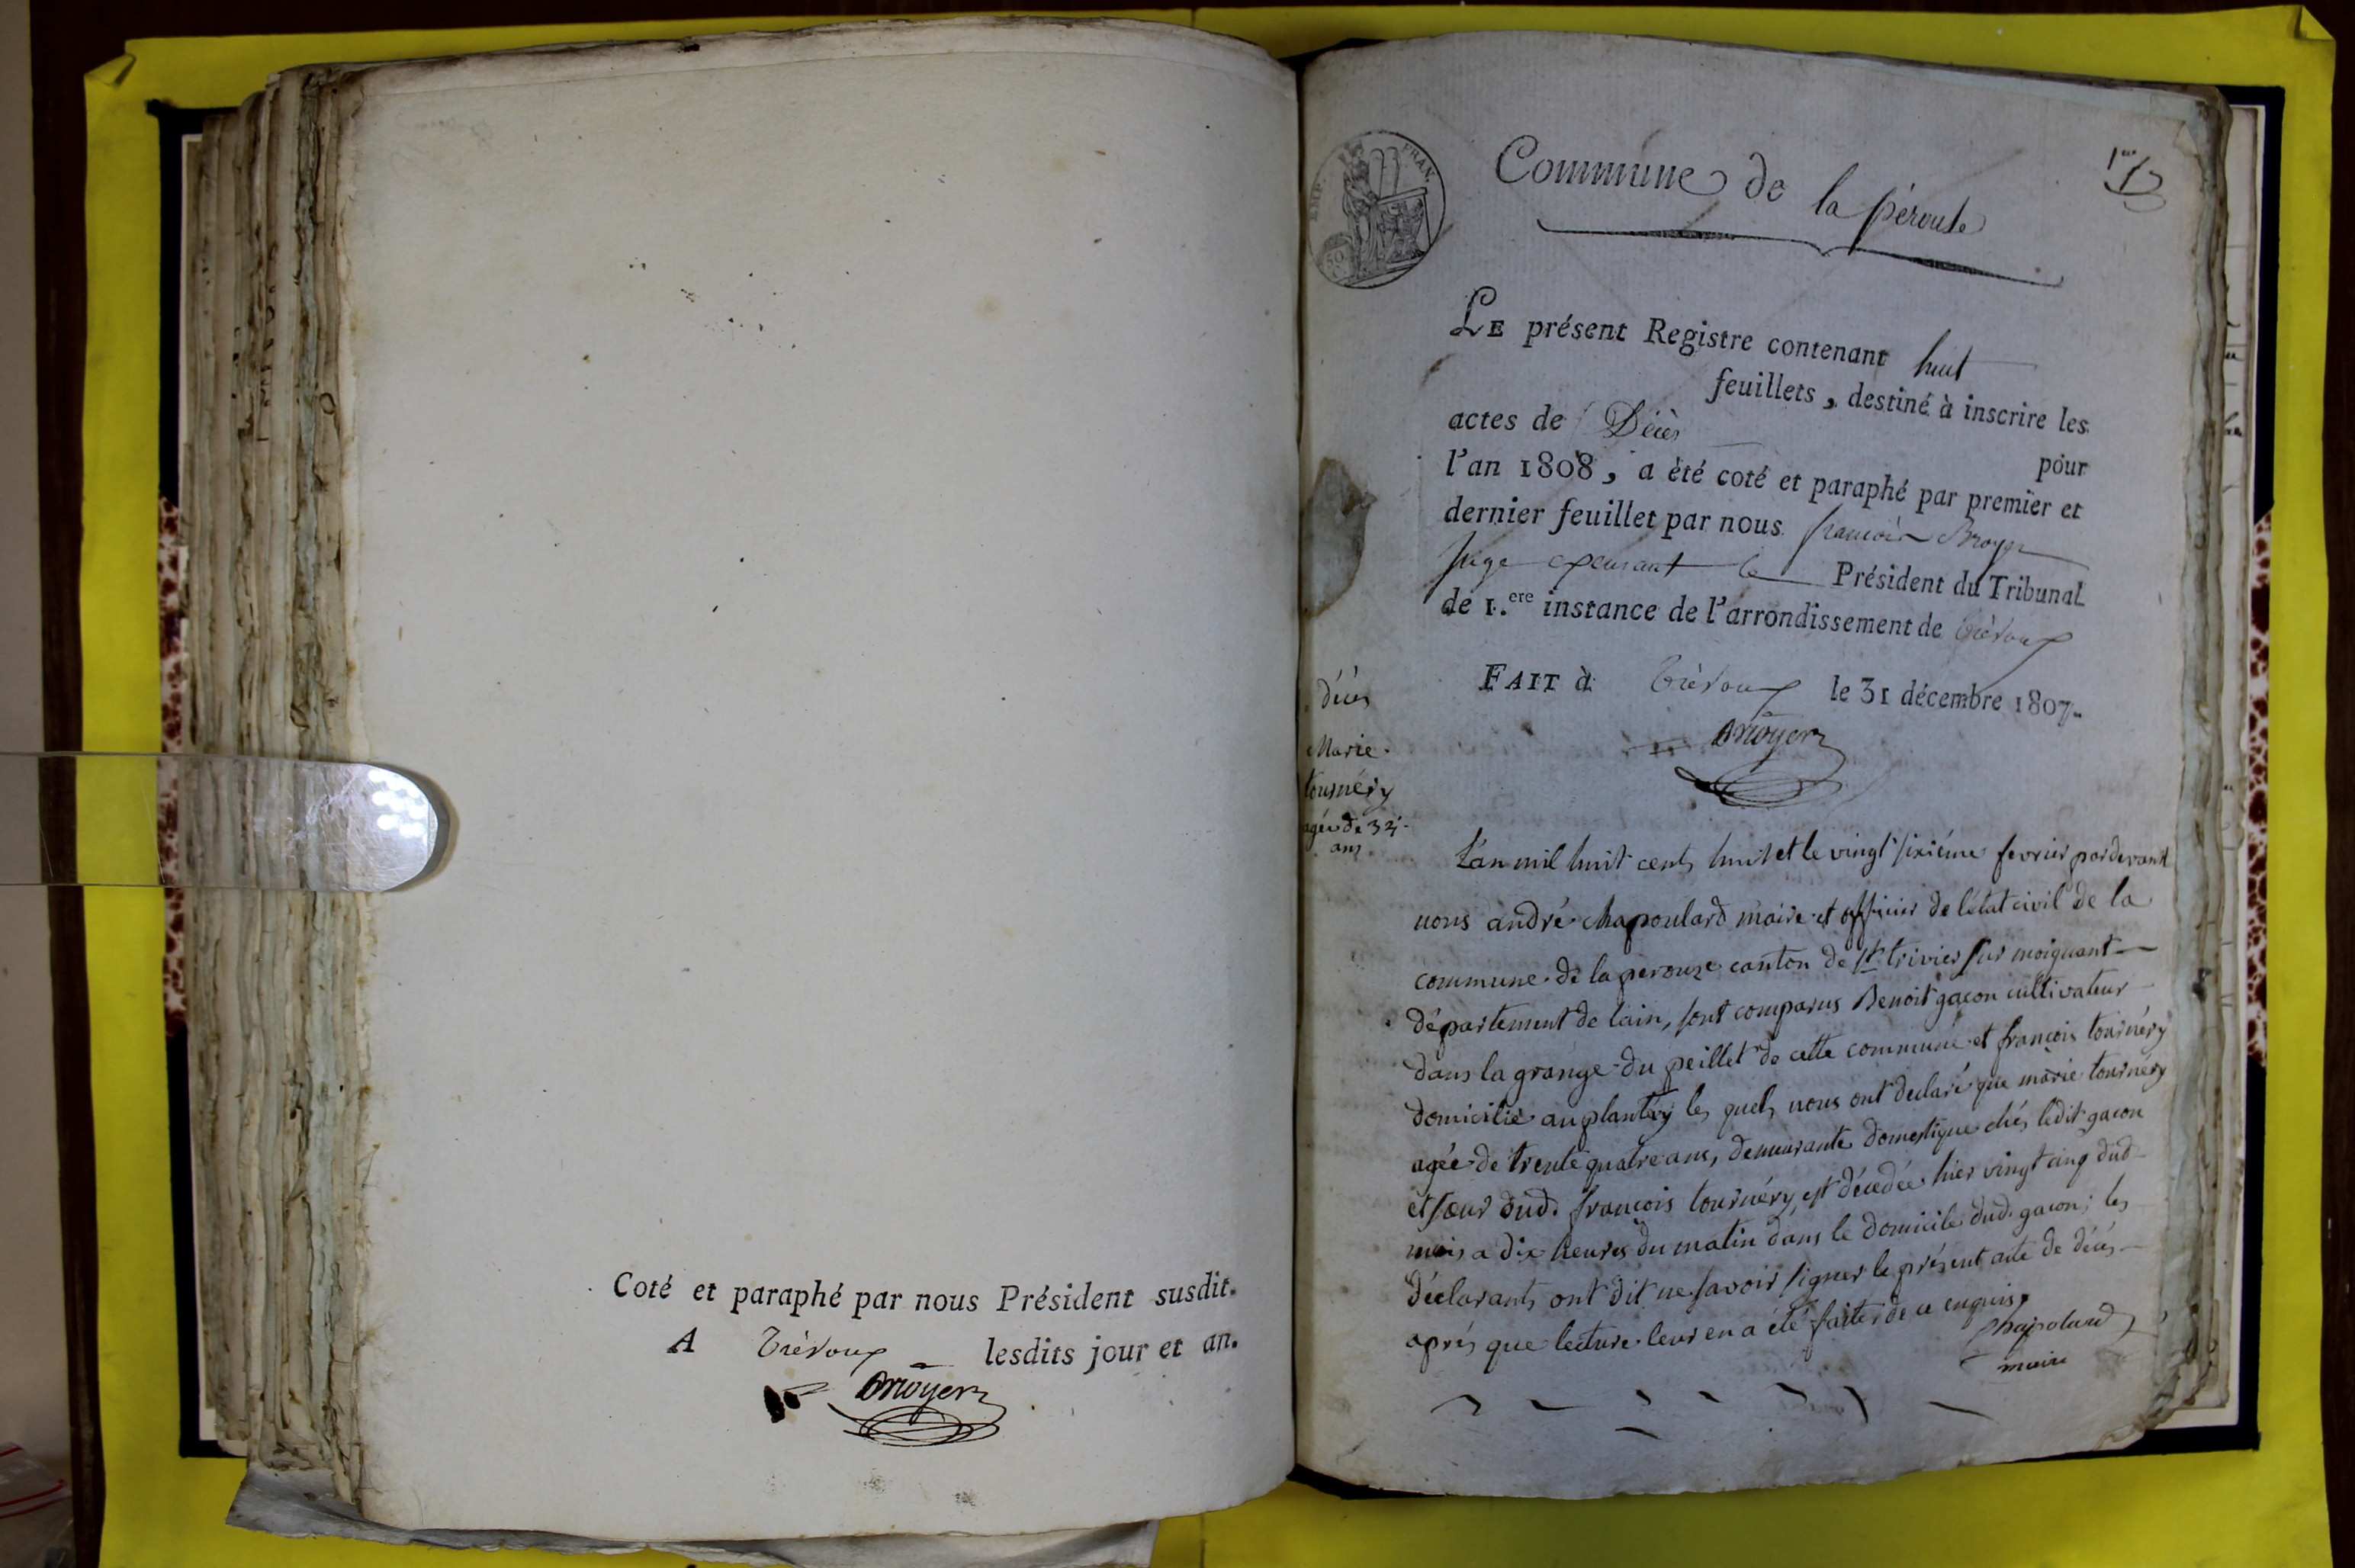 Coté et paraphé par nous Président susdit.
A Trévoux lesdits jour et an.
Broyer
EMP. FRAN.
50
Commune de la pérouse
1er
LE présent Registre contenant huit
feuillets, destiné à inscrire les
actes de Décès pour
l'an 1808, a été coté et paraphé par premier et
dernier feuillet par nous françois Broyer
Juge exerçant le Président du Tribunal
de 1.ere instance de l'arrondissement de Trévoux
FAIT à Trévoux le 31 décembre 1807.
Broyer
décés
Marie
tournéry
agée de 34
ans
L'an mil huit cents huit et le vingt sixiéme fevrier pardevant
nous andré chapoulard maire et officier de l'état civil de la
commune de la perouze canton de st trivier sur moignant
département de lain, sont comparus Benoit gacon cultivateur
dans la grange du peillet de cette commune et francois tournéry
domicilié au plantey les quels nous ont declaré que marie tournéry
agée de trente quatre ans, demeurante domestique chés ledit gacon
et sœur dud. francois tournéry, est décedée hier vingt cinq dud
mois a dix heures du matin dans le domicile dud. gacon; les
déclarants ont dit ne savoir signer le présent acte de décés
aprés que lecture leur en a été faite de ce enquis.
Chapolard
maire